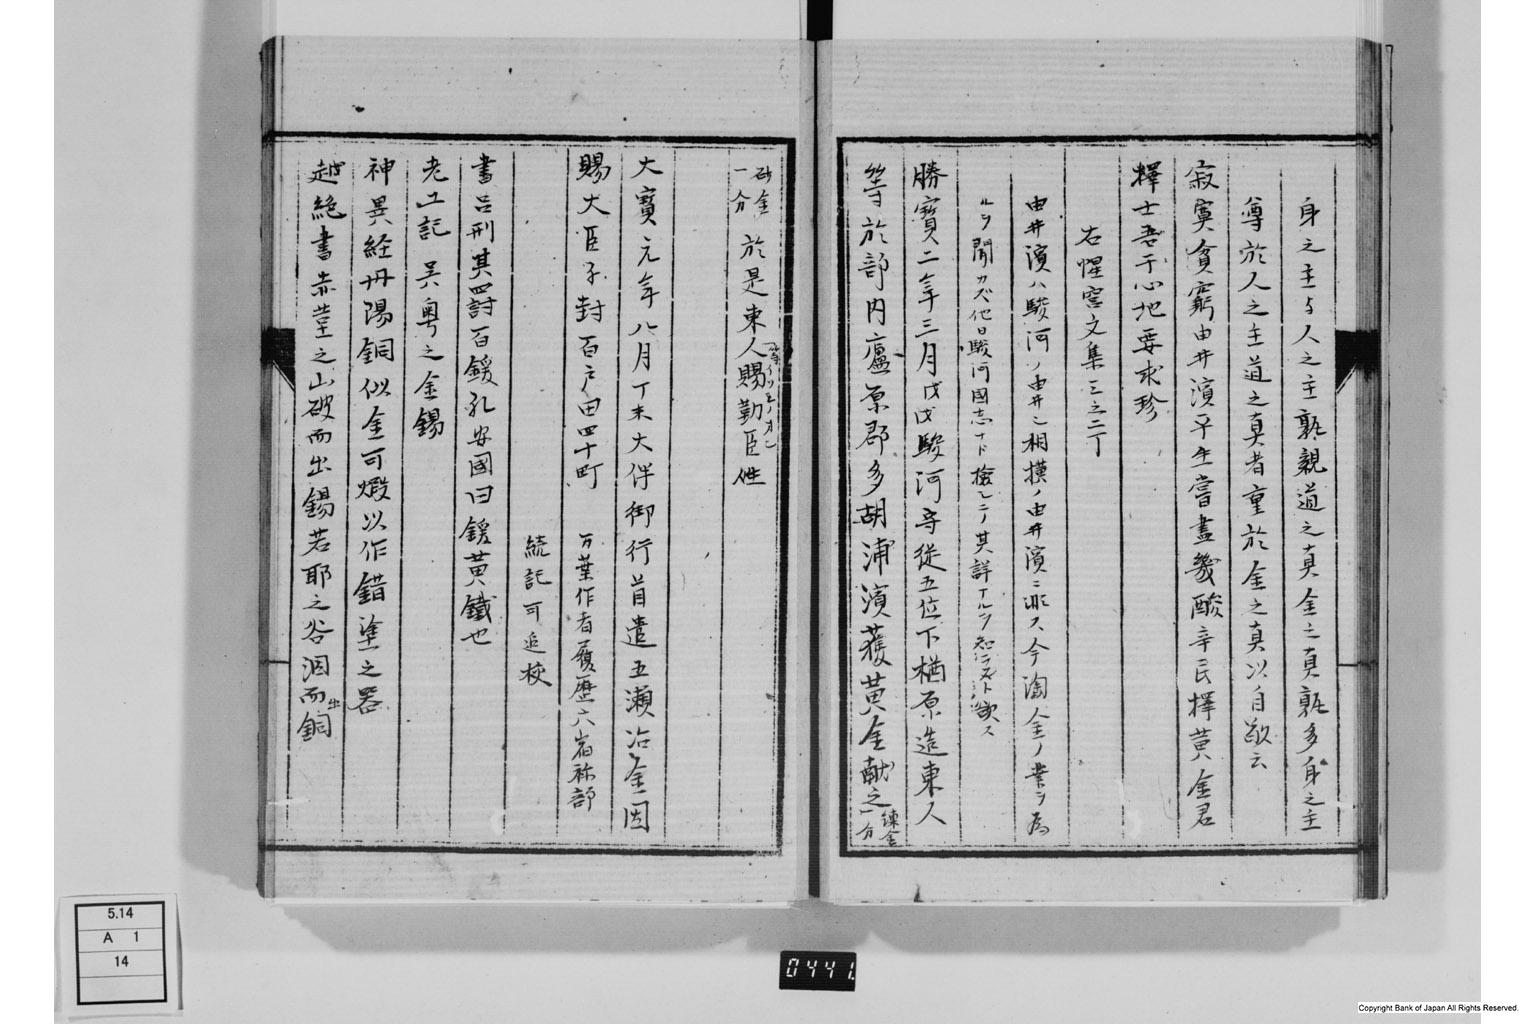 身之主与人之主孰親道之真金之真孰多身之主
尊於人之主道之真者重於金之真以自敬云
寂寞貧窮由井濱平生嘗盡幾酸辛民擇黄金君
擇士吾于心地要求珍
右惺窩文集三之二丁
由井濱ハ駿河ノ由井ニ相摸ノ由井濱ニ非ス今淘金ノ業ヲ為
ルヲ聞カズ他日駿河國志ナト検シテ其詳ナルヲ知ラント欲ス
勝寳二年三月戊戌駿河守従五位下楢原造東人
等於部内廬原郡多胡浦濱獲黄金献之 練金一分
砂金一分 於是東人賜勤臣姓
大寳元年八月丁未大伴御行首遣五瀬冶金因
賜大臣子封百戸田四十町 万葉作者履歴六
続記可追挍
書呂刑其罰百鍰孔安國曰鍰黄鐵也
考工記 呉粤之金錫
神異経丹陽銅似金可煅以作錯塗之器
越絶書赤堇之山破而出錫若耶之谷涸而出銅
5.14
A 1
14
0441
Copyright Bank of Japan All Rights Reserved.